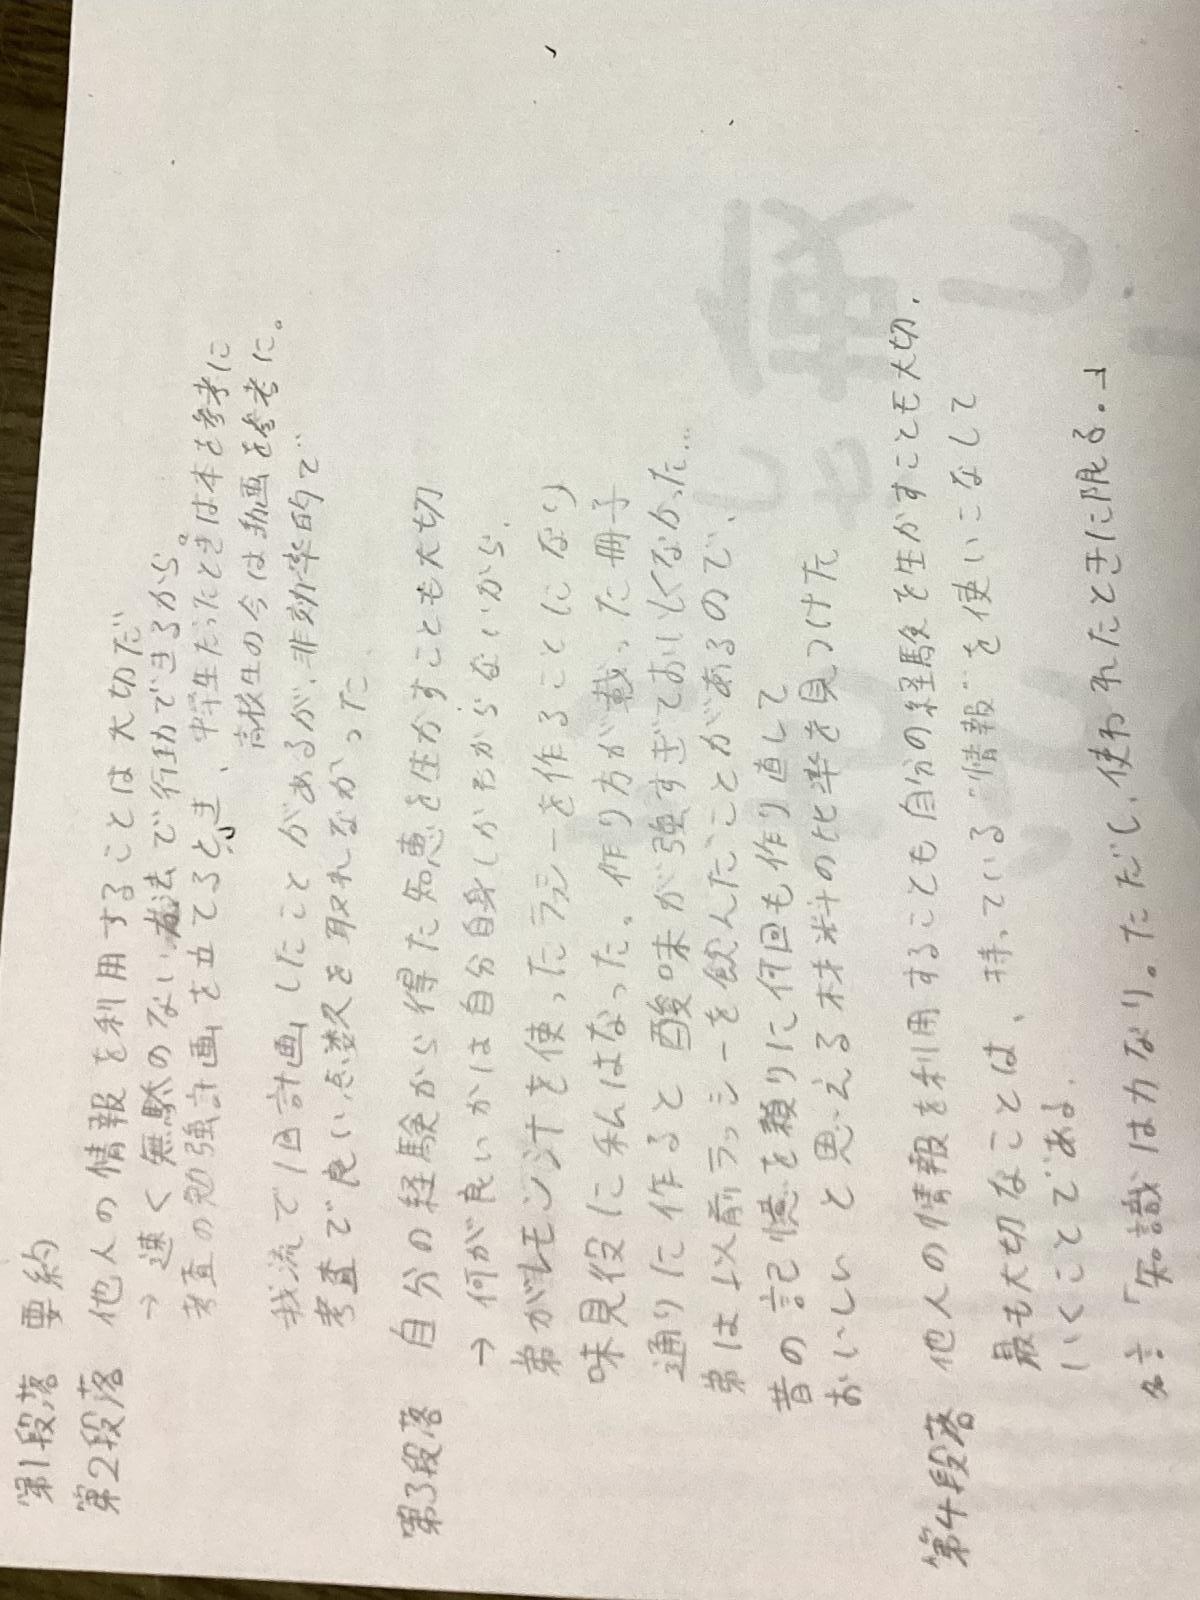 第1段落 要約
第2段落 他人の情報を利用することは大切だ
→ 速く無駄のない方法で行動できるから。
考査の勉強計画を立てるとき、中学生だったときは本を参考に
高校生の今は動画を参考に。
我流で1回計画したことがあるが、非効率的で
考査で良い点数を取れなかった
第3段落 自分の経験から得た知恵を生かすことも大切
→ 何が良いかは自分自身しかわからないから.
弟がレモン汁を使ったラッシーを作ることになり
味見役に私はなった。作り方が載った冊子
通りに作ると酸味が強すぎておいしくなかった…
弟は以前ラッシーを飲んだことがあるので、
昔の記憶を頼りに何回も作り直して
おいしいと思える材料の比率を見つけた
第4段落 他人の情報を利用することも自分の経験を生かすことも大切.
最も大切なことは、持っている"情報"を使いこなして
いくことである.
名言「知識は力なり。ただし、使われたときに限る。」